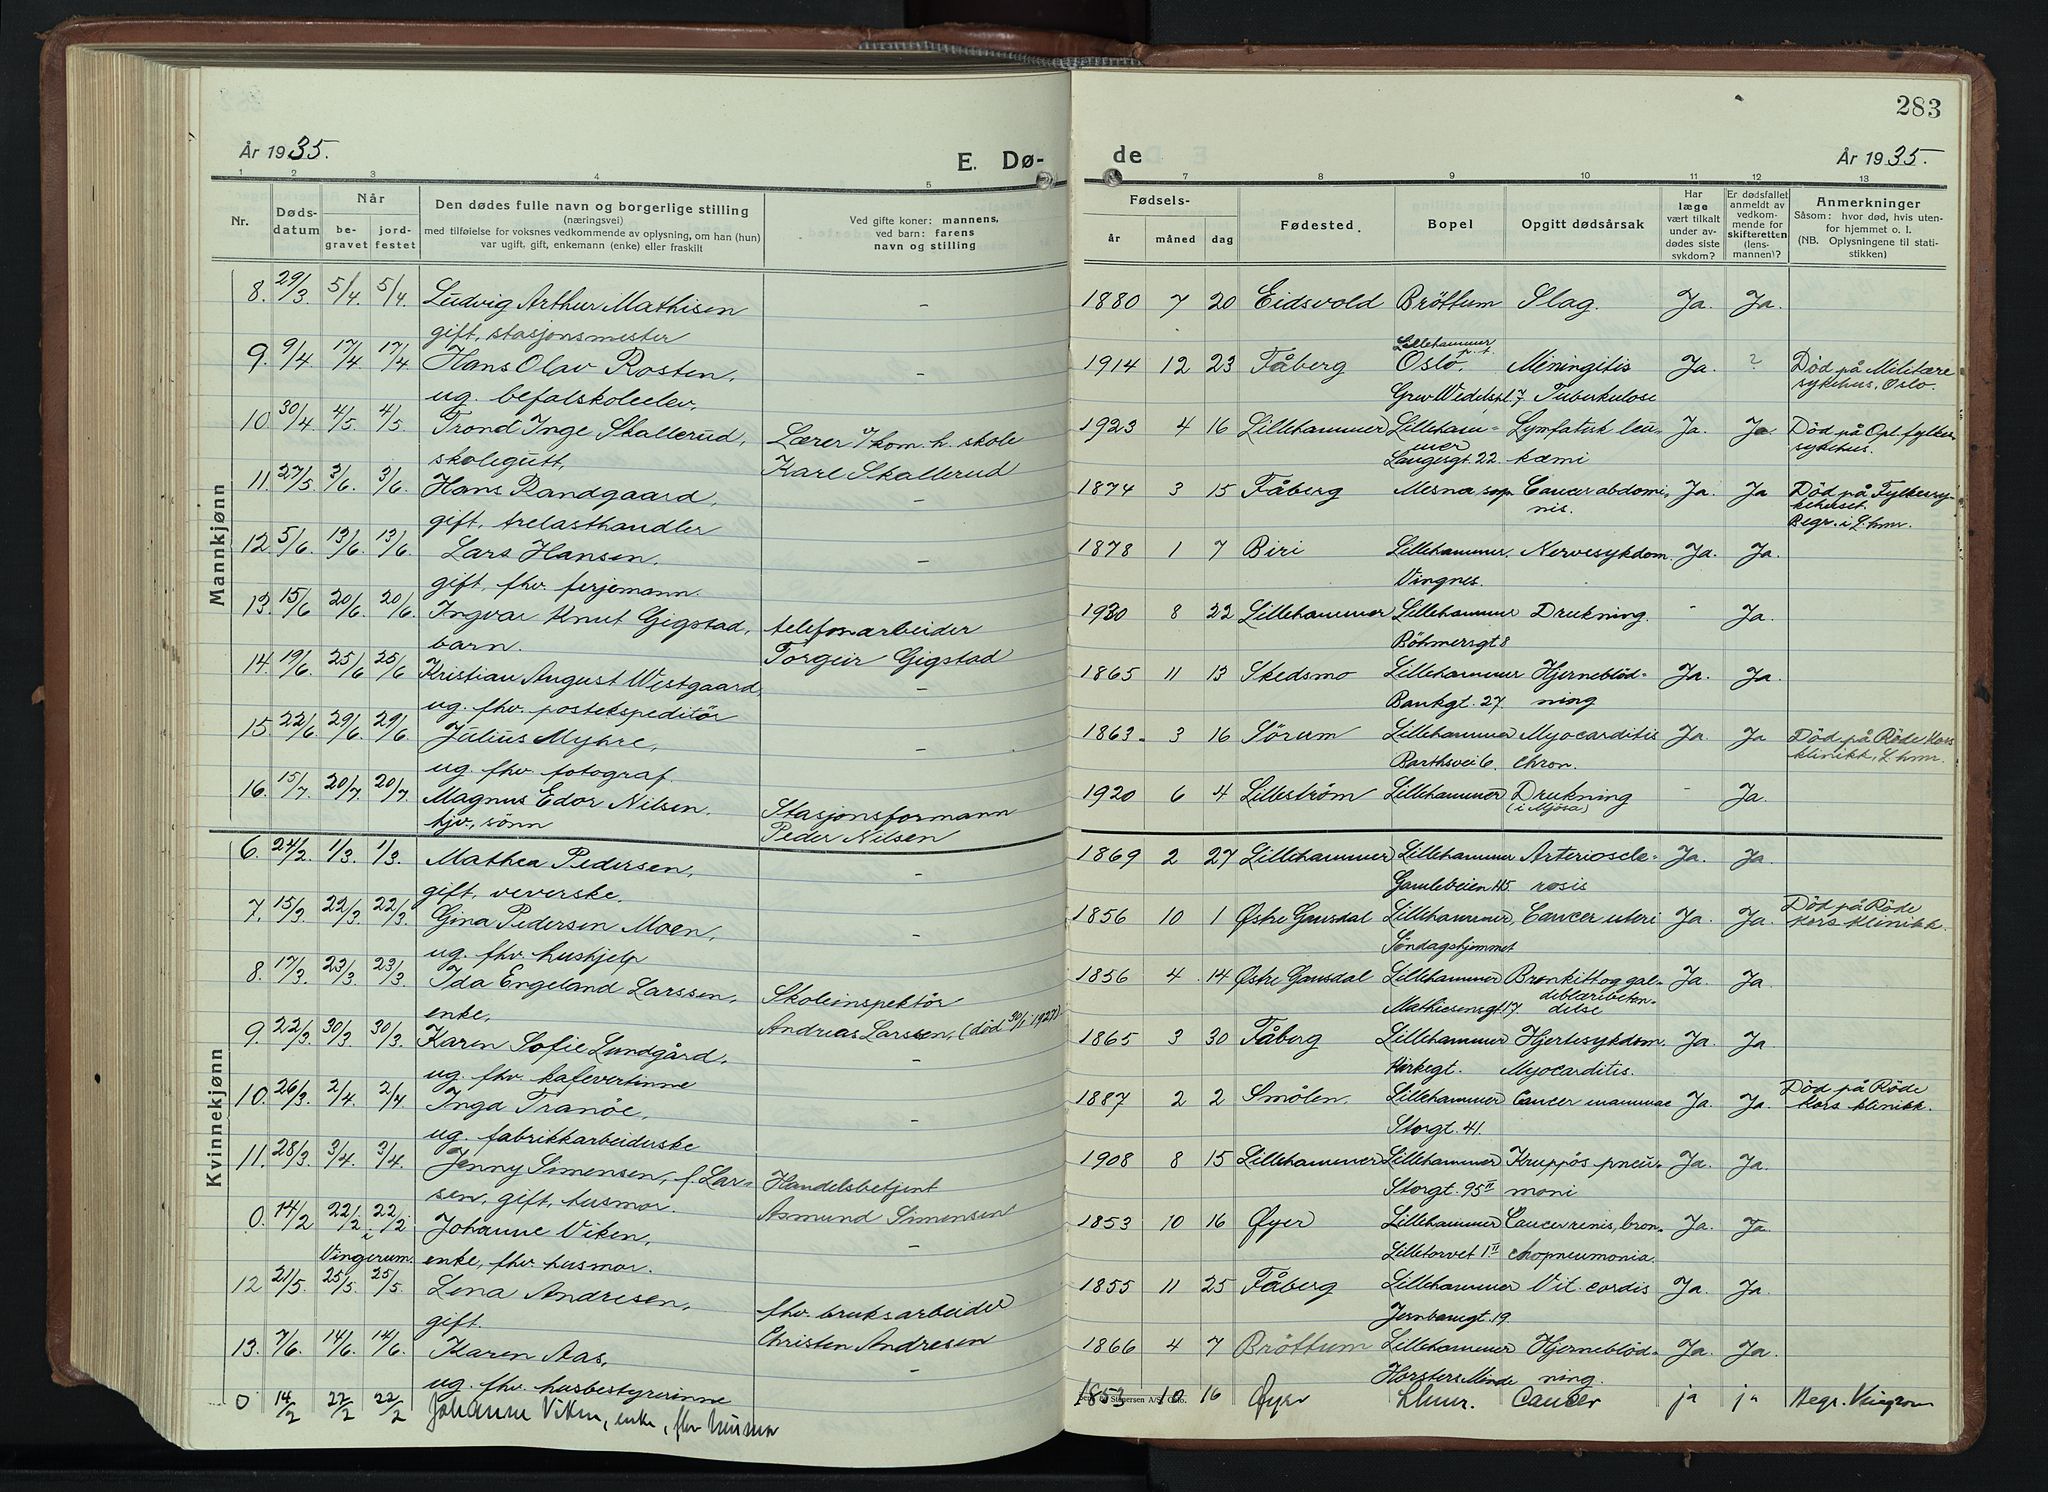 283
År 1935.
E. Dø-
de
År 1935.
1 2 3 4 5 7 8 9 10 11 12 13
Nr.
Døds-
datum
Når
be-
gravet
jord-
festet
Den dødes fulle navn og borgerlige stilling
(næringsvei)
med tilføielse for voksnes vedkommende av oplysning, om han (hun)
var ugift, gift, enkemann (enke) eller fraskilt
Ved gifte koner: mannens,
ved barn: farens
navn og stilling
Fødsels-
år måned dag
Fødested
Bopel
Opgitt dødsårsak
Har
læge
vært tilkalt
under av-
dødes siste
sykdom?
Er dødsfallet
anmeldt av
vedkom-
mende for
skifteretten
(lens-
mannen)?
Anmerkninger
Såsom: hvor død, hvis uten-
for hjemmet o. l.
(NB. Oplysningene til stati-
stikken)
Mannkjønn
8. 29/3 5/4. 5/4. Ludvig Arthur Mathisen - 1880 7 20 Eidsvold Brøttum Slag. Ja. Ja.
gift, stasjonsmester
Lillehammer p.t.
9. 9/4 17/4 17/4 Hans Olav Rosten, - 1914 12 23 Fåberg Oslo. Meningitis Ja. ? Død på Militære
ug. befalskoleelev. Grev Wedelspl. 7 Tuberkulose sykehus, Oslo.
10 30/4 4/5. 4/5. Trond Inge Skallerud, Lærer v/ kom. h. skole 1923 4 16 Lillehammer Lilleham- Lymfatisk leu- Ja. Ja. Død på Opl. fylkes
skolegutt, Karl Skallerud mer Langesgt. 22. kæmi sykehus.
11. 27/5 3/6. 3/6. Hans Randgaard, - 1874 3 15 Fåberg Mesna sop. Cancer abdomi- Ja. Ja Død på Fylkessy-
gift, trelasthandler nis. kehuset.
Begr. i L.hmr.
12 5/6. 13/6. 13/6. Lars Hansen, - 1878 1 7 Biri Lillehammer, Nervesykdom Ja. Ja.
gift, fhv. ferjemann. Vingnes.
13. 15/6 20/6. 20/6. Ingvar Knut Gigstad, telefonarbeider 1930 8 22 Lillehammer Lillehammer Drukning. - Ja.
barn. Torgeir Gigstad Bøhmersgt 8
14 19/6. 25/6 25/6 Kristian August Westgaard, - 1865 11 13 Skedsmo Lillehammer Hjerneblød- Ja. Ja.
ug. fhv. postekspeditør Bankgt. 27 ning
15. 22/6. 29/6. 29/6. Julius Myhre, - 1863. 3 16 Sørum Lillehammer Myocarditis Ja. Ja Død på Røde Kors
ug. fhv. fotograf. Barthsvei 6. chron. klinikk, L.hmr.
16. 15/7. 20/7. 20/7. Magnus Edor Nilsen. Stasjonsformann 1920 6 4 Lillestrøm Lillehammer Drukning - Ja.
hjv., sønn Peder Nilsen (i Mjøsa)
Kvinnekjønn
6. 24/2. 1/3. 1/3. Mathea Pedersen, - 1869 2 27 Lillehammer Lillehammer Arterioscle- Ja. Ja.
gift, veverske. Gamleveien 45 rosis
7. 15/3. 22/3. 22/3. Gina Pedersen Moen, - 1856 10 1 Østre Gausdal Lillehammer, Cancer uteri Ja. Ja. Død på Røde
ug. fhv. hushjelp Søndagshjemmet Kors klinikk.
8. 17/3. 23/3. 23/3. Ida Engeland Larssen, Skoleinspektør 1856 4. 14 Østre Gausdal Lillehammer Bronkitt og gal- Ja. Ja.
enke, Andreas Larssen, (død 30/1-1927). Mathiesensgt. 17. deblærebeten-
delse
9. 22/3. 30/3. 30/3. Karen Sofie Lundgård. - 1865 3 30 Fåberg Lillehammer Hjertesykdom. Ja. Ja.
ug. fhv. kafevertinne Kirkegt. Myocarditis.
10. 26/3. 2/4. 2/4 Inga Tranøe, - 1887 2 2 Smølen. Lillehammer Cancer mammae Ja. Ja. Død på Røde
ug. fabrikkarbeiderske Storgt. 41. Kors klinikk.
11. 28/3. 3/4. 3/4. Jenny Simensen, f. Lar- Handelsbetjent 1908 8 15 Lillehammer Lillehammer Kruppøs pneu- Ja. Ja.
sen, gift, husmor. Asmund Simensen Storgt. 95 II moni
0. 14/2 22/2 22/2 Johanne Viken, - 1853 10 16 Øyer Lillehammer Cancer renis, bron- Ja. Ja
i Vingerum. enke, fhv. husmor. Lilletorvet 1 II chopneumonia.
12 21/5. 25/5. 25/5. Lina Andresen, fhv. bruksarbeider 1855 11 25 Fåberg Lillehammer Vit. cordis Ja. Ja.
gift. Christen Andresen Jernbanegt. 19.
13. 7/6. 14/6. 14/6. Karen Aas, - 1866 4 7 Brøttum Lillehammer Hjerneblød- Ja. Ja.
ug. fhv. husbestyrerinne Horsters Minde ning.
0 14/2 22/2 22/2 Johanne Viken, enke, fhv husmor 1853 10 16 Øyer Lhmr. Cancer ja ja Begr. Vingrom